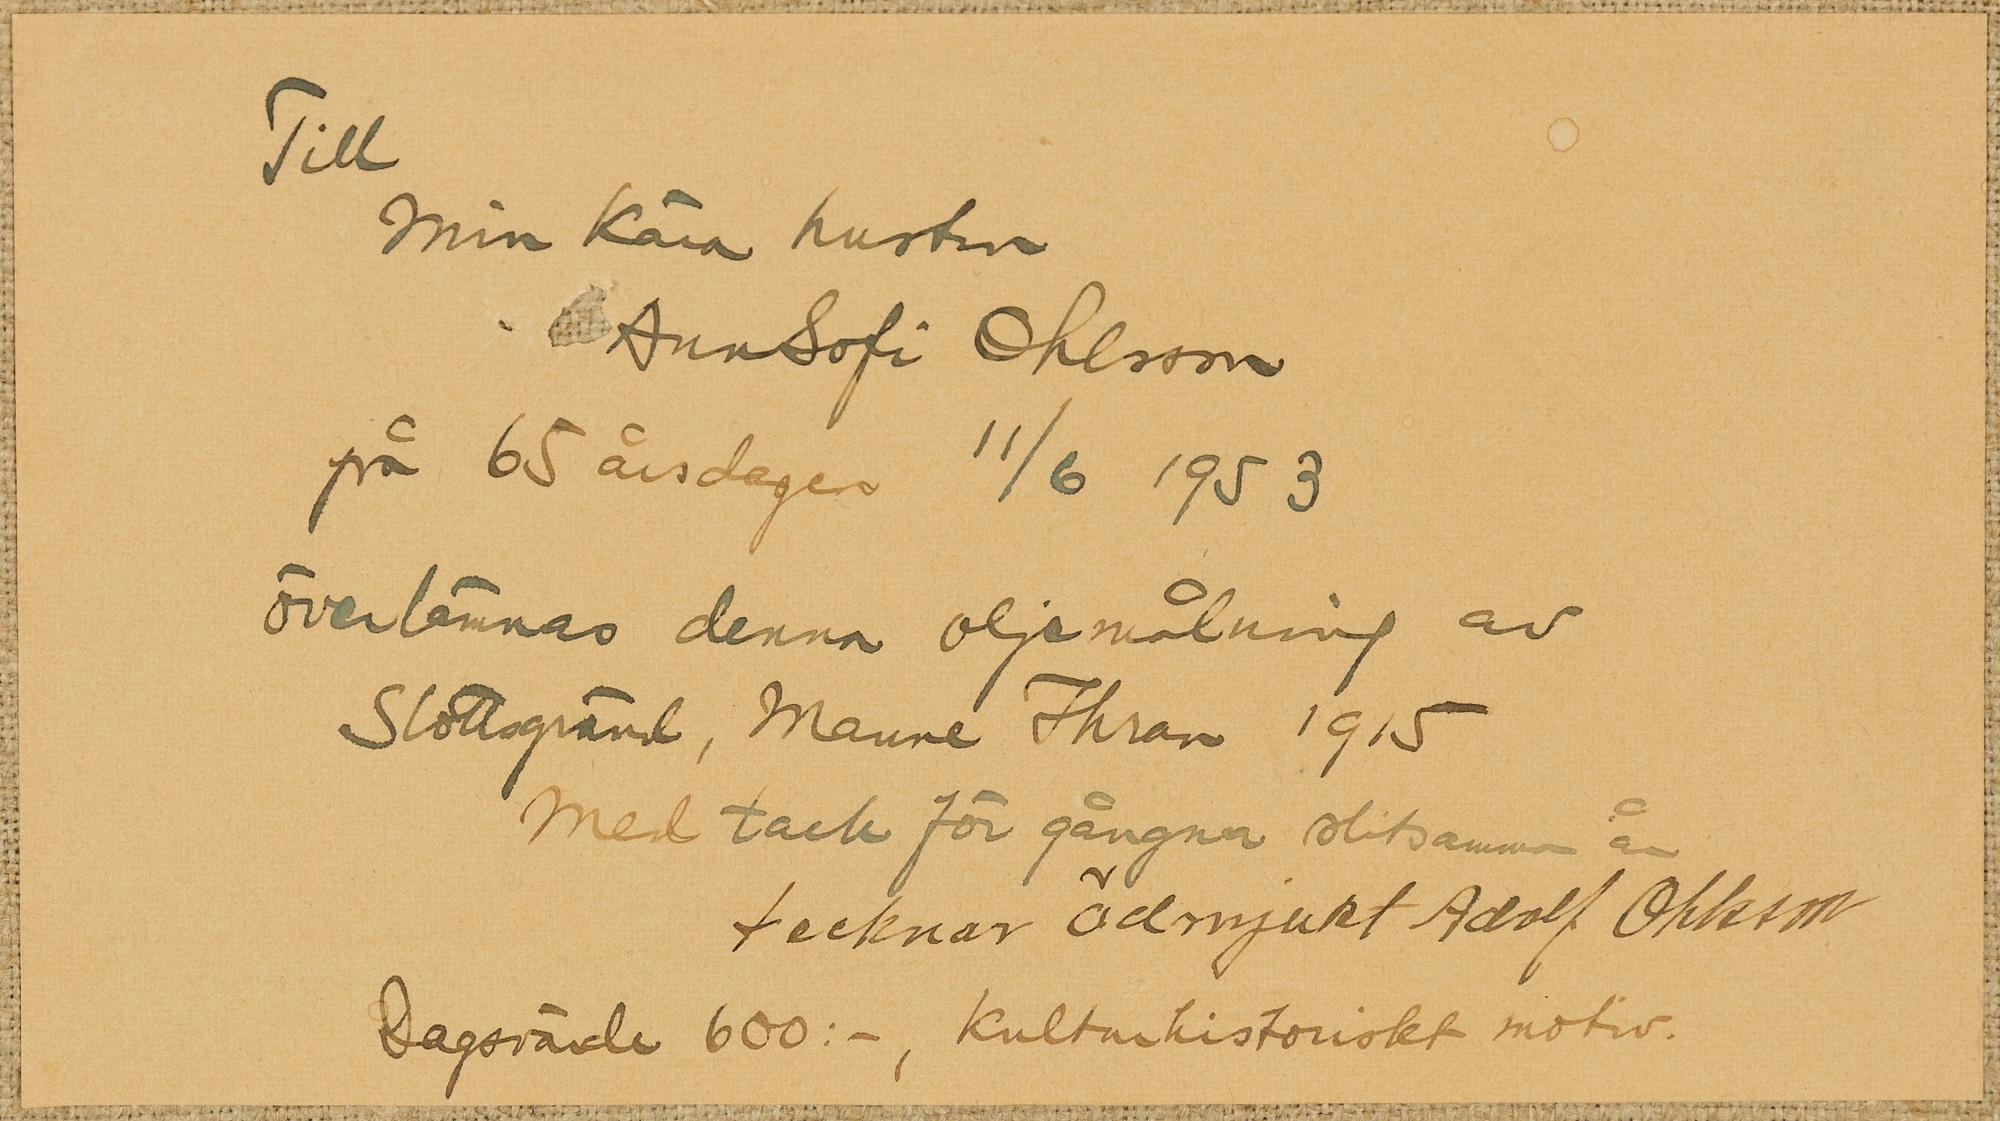 Till
Min Kära hustru
AnnSofi Ohlsson
på 65 årsdagen 11/6 1953
överlämnas denna oljemålning av
Slottsgränd, Maune Thran 1915
Med tack för gångna slitsamma år
tecknar Ödmjukt Adolf Ohlsson
Dagsvärde 600:-, Kulturhistoriskt motiv.